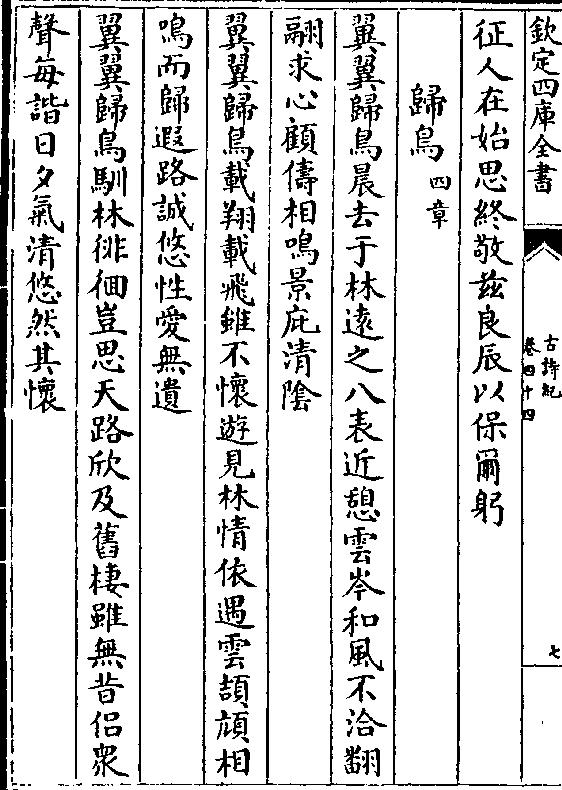 欽定四庫全書
古詩紀
卷四十四
七
征人在始思終敬茲良辰以保爾躬
歸鳥四章
翼翼歸鳥晨去于林遠之八表近憩雲岑和風不洽翻
翮求心顧儔相鳴景庇清陰
翼翼歸鳥載翔載飛雖不懷遊見林情依遇雲頡頏相
鳴而歸遐路誠悠性愛無遺
翼翼歸鳥馴林徘徊豈思天路欣及舊棲雖無昔侶衆
聲每諧日夕氣清悠然其懷